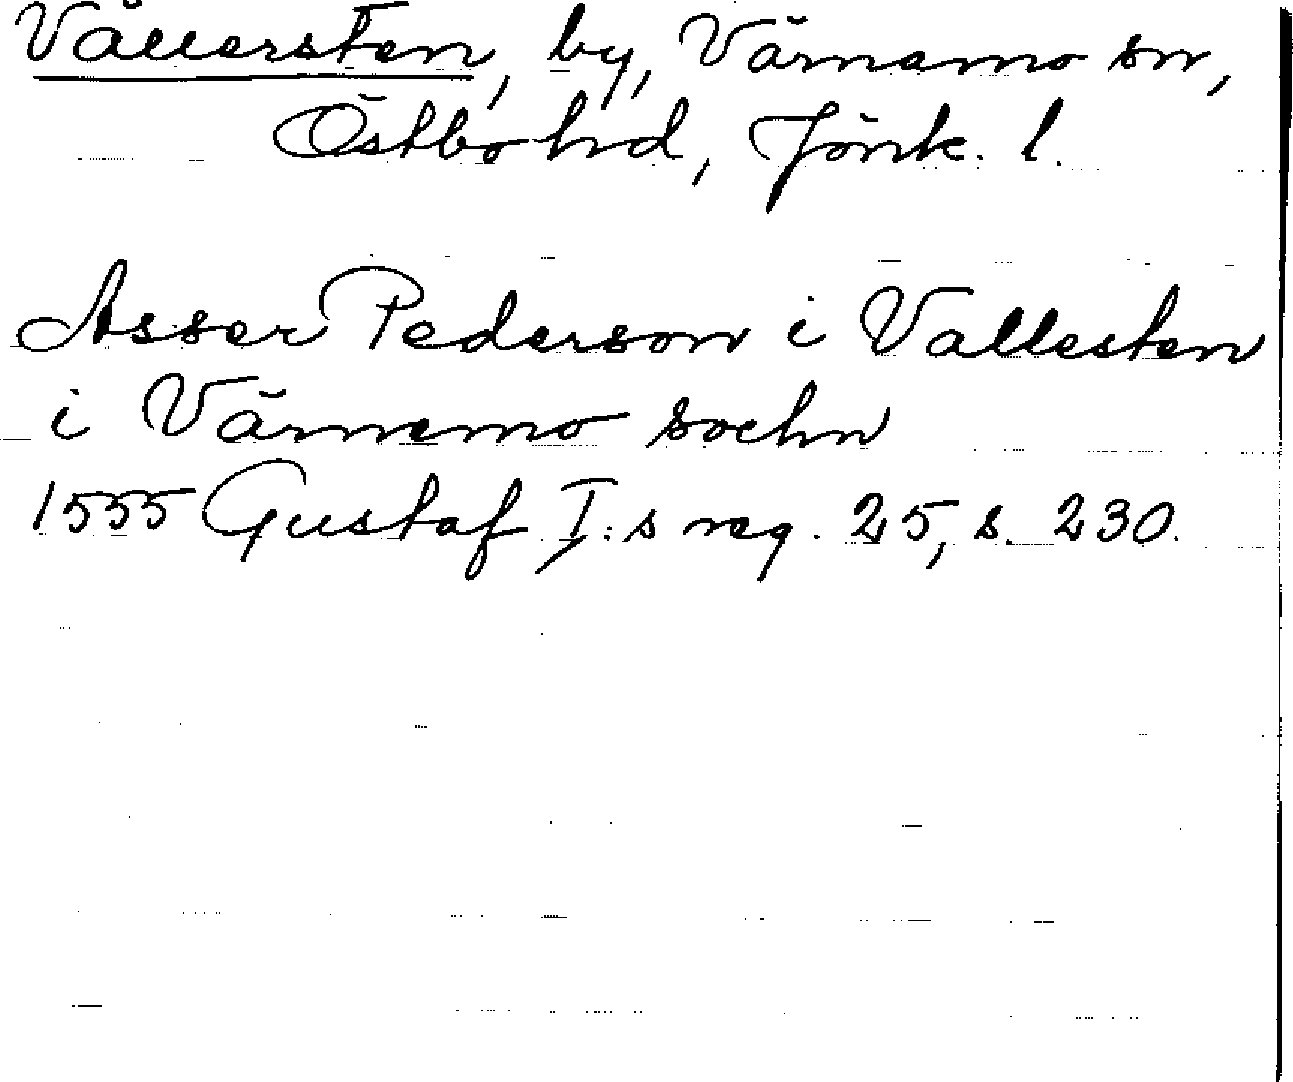 Vällersten, by, Värnamo sn,
Östbo hd, Jönk. l.
Asser Pederson i Vallesten
i Värnemo sochn
1555 Gustaf I:s reg. 25, s. 230.